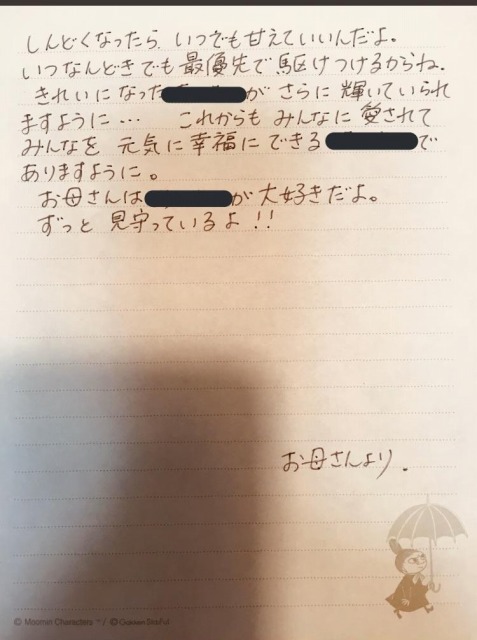 しんどくなったら、いつでも甘えていいんだよ。
いつなんどきでも最優先で駆けつけるからね。
きれいになった が さらに 輝いていられ
ますように… これからも みんなに 愛されて
みんなを 元気に 幸福に できる で
ありますように。
お母さんは が 大好きだよ。
ずっと 見守っているよ!!
お母さんより.
© Moomin Characters ™ / © Gakken Sta:Ful